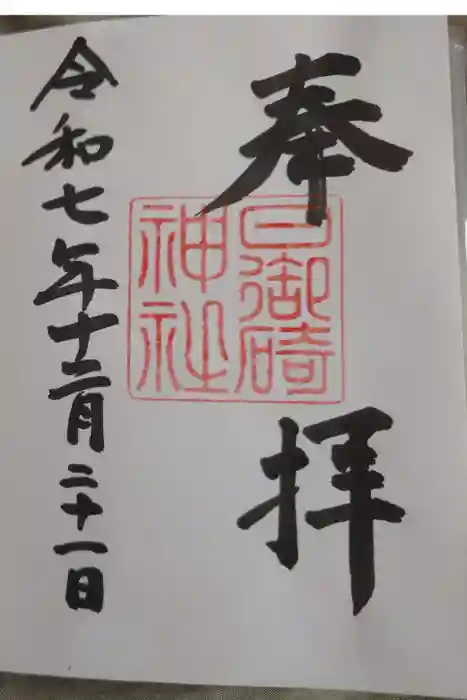 奉拝
日御碕
神社
令和七年十二月二十一日